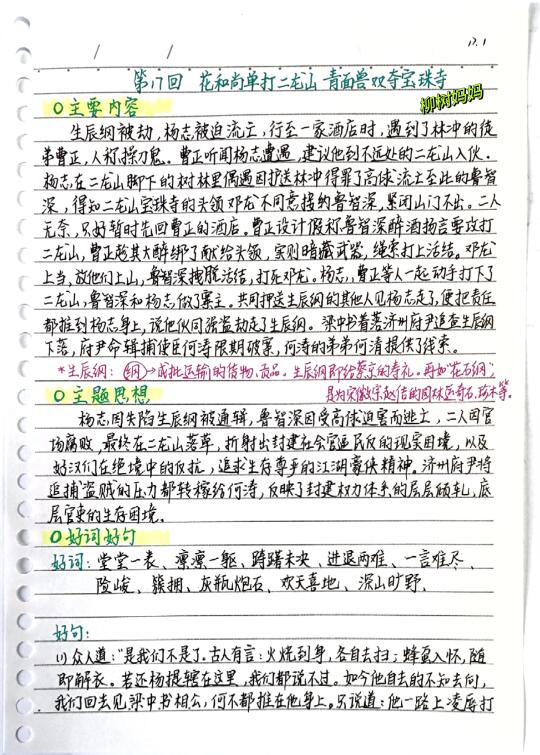 17.1
第17回 花和尚单打二龙山 青面兽双夺宝珠寺
柳树妈妈
○主要内容
生辰纲被劫，杨志被迫流亡，行至一家酒店时，遇到了林冲的徒
弟曹正，人称操刀鬼。曹正听闻杨志遭遇，建议他到不远处的二龙山入伙。
杨志在二龙山脚下的树林里偶遇因护送林冲得罪了高俅流亡至此的鲁智
深，得知二龙山宝珠寺的头领邓龙不同意接纳鲁智深，紧闭山门不出。二人
无奈，只好暂时先回曹正的酒店。曹正设计假称鲁智深醉酒扬言要攻打
二龙山，曹正趁其大醉绑了献给头领，实则暗藏武器，绳索打上活结。邓龙
上当，放他们上山，鲁智深挣脱活结，打死邓龙。杨志，曹正等人一起动手打下了
二龙山，鲁智深和杨志做了寨主。共同押送生辰纲的其他人见杨志走了，便把责任
都推到杨志身上，说他伙同强盗劫走了生辰纲。梁中书着落济州府尹追查生辰纲
下落，府尹命缉捕使臣何涛限期破案，何涛的弟弟何清提供了线索。
*生辰纲：纲→成批运输的货物、贡品。生辰纲即给蔡京的寿礼。再如“花石纲”，
是为宋徽宗赵佶的园林运奇石、珍木等。
○主题思想
杨志因失陷生辰纲被通缉，鲁智深因受高俅迫害而逃亡，二人因官
场腐败，最终在二龙山落草，折射出封建社会官逼民反的现实困境，以及
好汉们在绝境中的反抗，追求生存尊严的江湖豪侠精神。济州府尹将
追捕盗贼的压力都转嫁给何涛，反映了封建权力体系的层层倾轧，底
层官吏的生存困境。
○好词好句
好词：堂堂一表、凛凛一躯、踌躇未决、进退两难、一言难尽、
险峻、簇拥、灰瓶炮石、欢天喜地、深山旷野、
好句：
(1)众人道：“是我们不是了。古人有言：火烧到身，各自去扫；蜂虿入怀，随
即解衣。若还杨提辖在这里，我们都说不过。如今他自去的不知去向，
我们回去见梁中书相公，何不都推在他身上。只说道：他一路上凌辱打